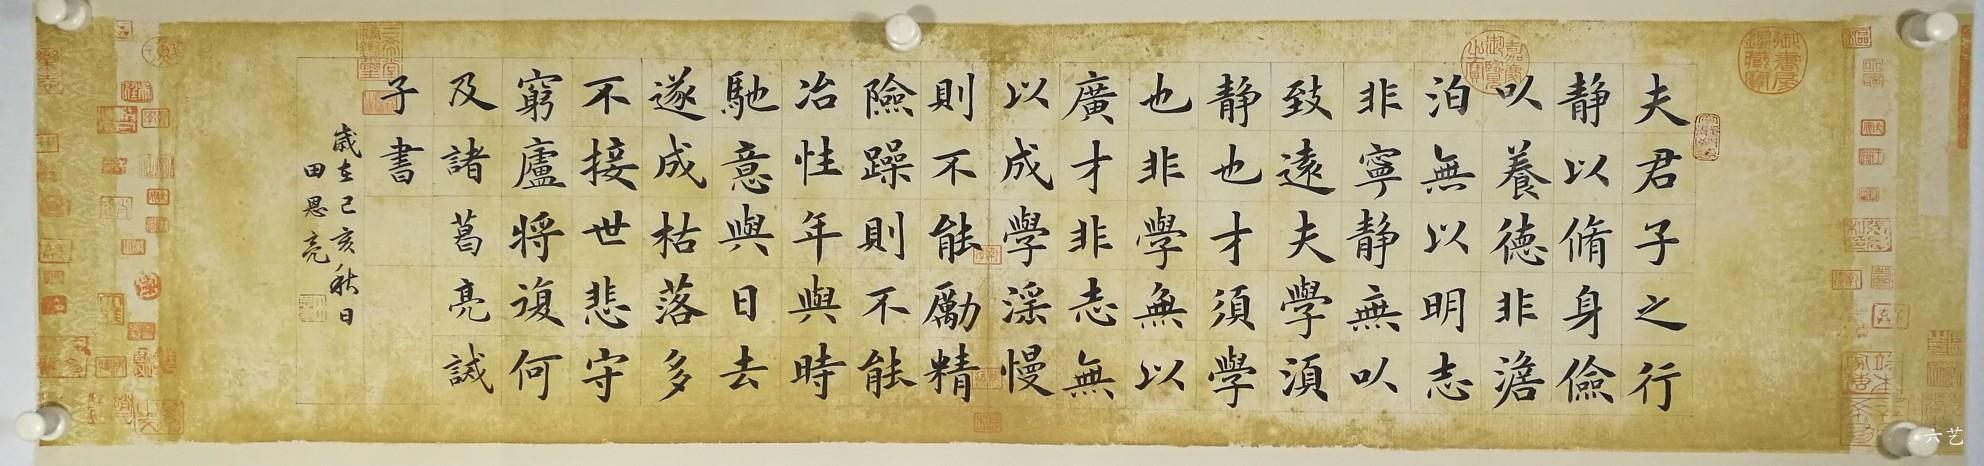 御書房鑑藏寶
嘉慶御覽之寶
夫君子之行
静以脩身儉
以養德非澹
泊無以明志
非寧静無以
致遠夫學須
静也才須學
也非學無以
廣才非志無
以成學滛慢
則不能勵精
險躁則不能
冶性年與時
馳意與日去
遂成枯落多
不接世悲守
窮廬将復何
及諸葛亮誡
子書
歲在己亥秋日
田恩亮
三希堂精鑑璽
六艺